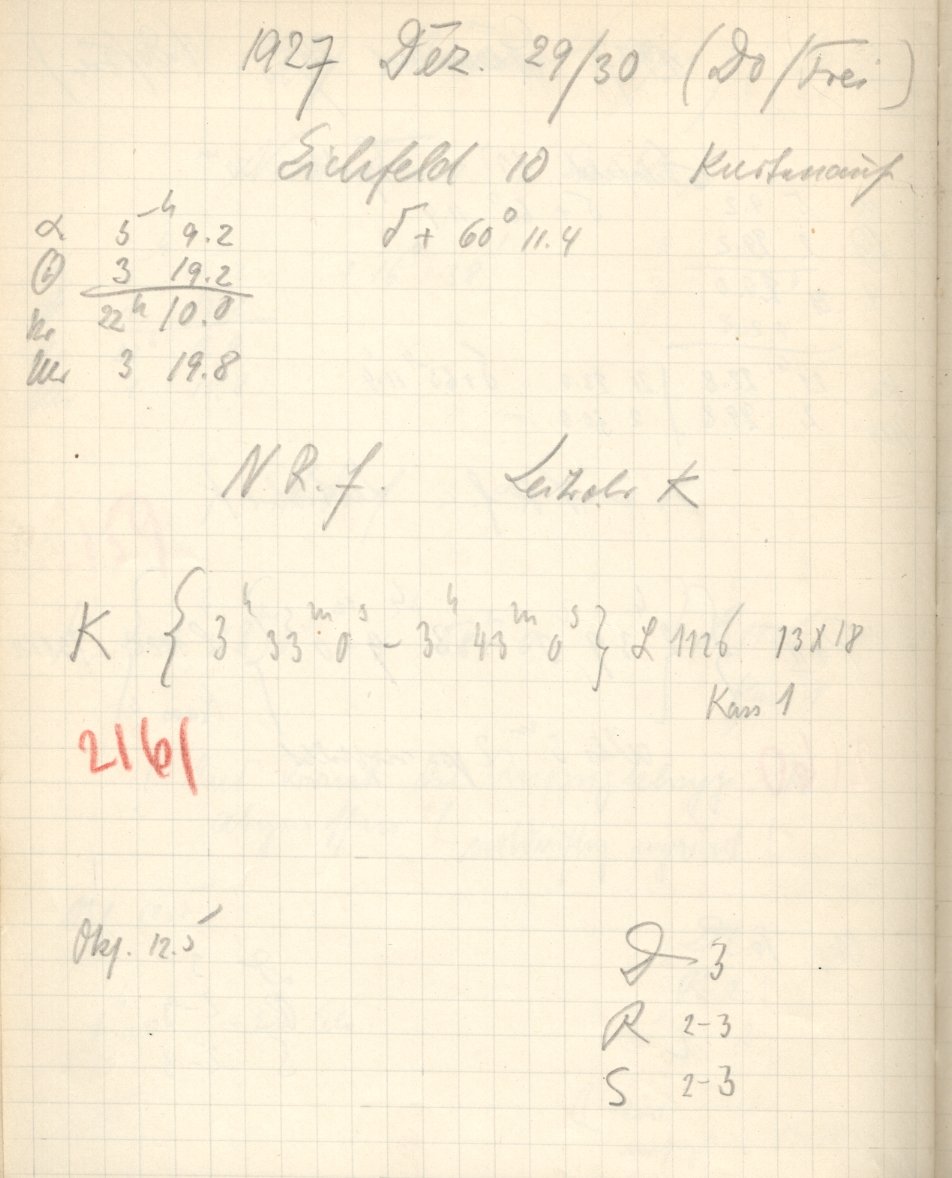 1927 Dez. 29/30 (Do/Frei)
Eichfeld 10 Küstenauf
α 5h 9.2 δ + 60° 11.4
Θ 3 19.2
22h 10.0
3 19.8
N R. f. Leitrohr K
K {3h 33m 0s – 3h 43m 0s} L 1126 13x18
Kass 1
2161
Okj. 12.5
D 3
R 2-3
S 2-3